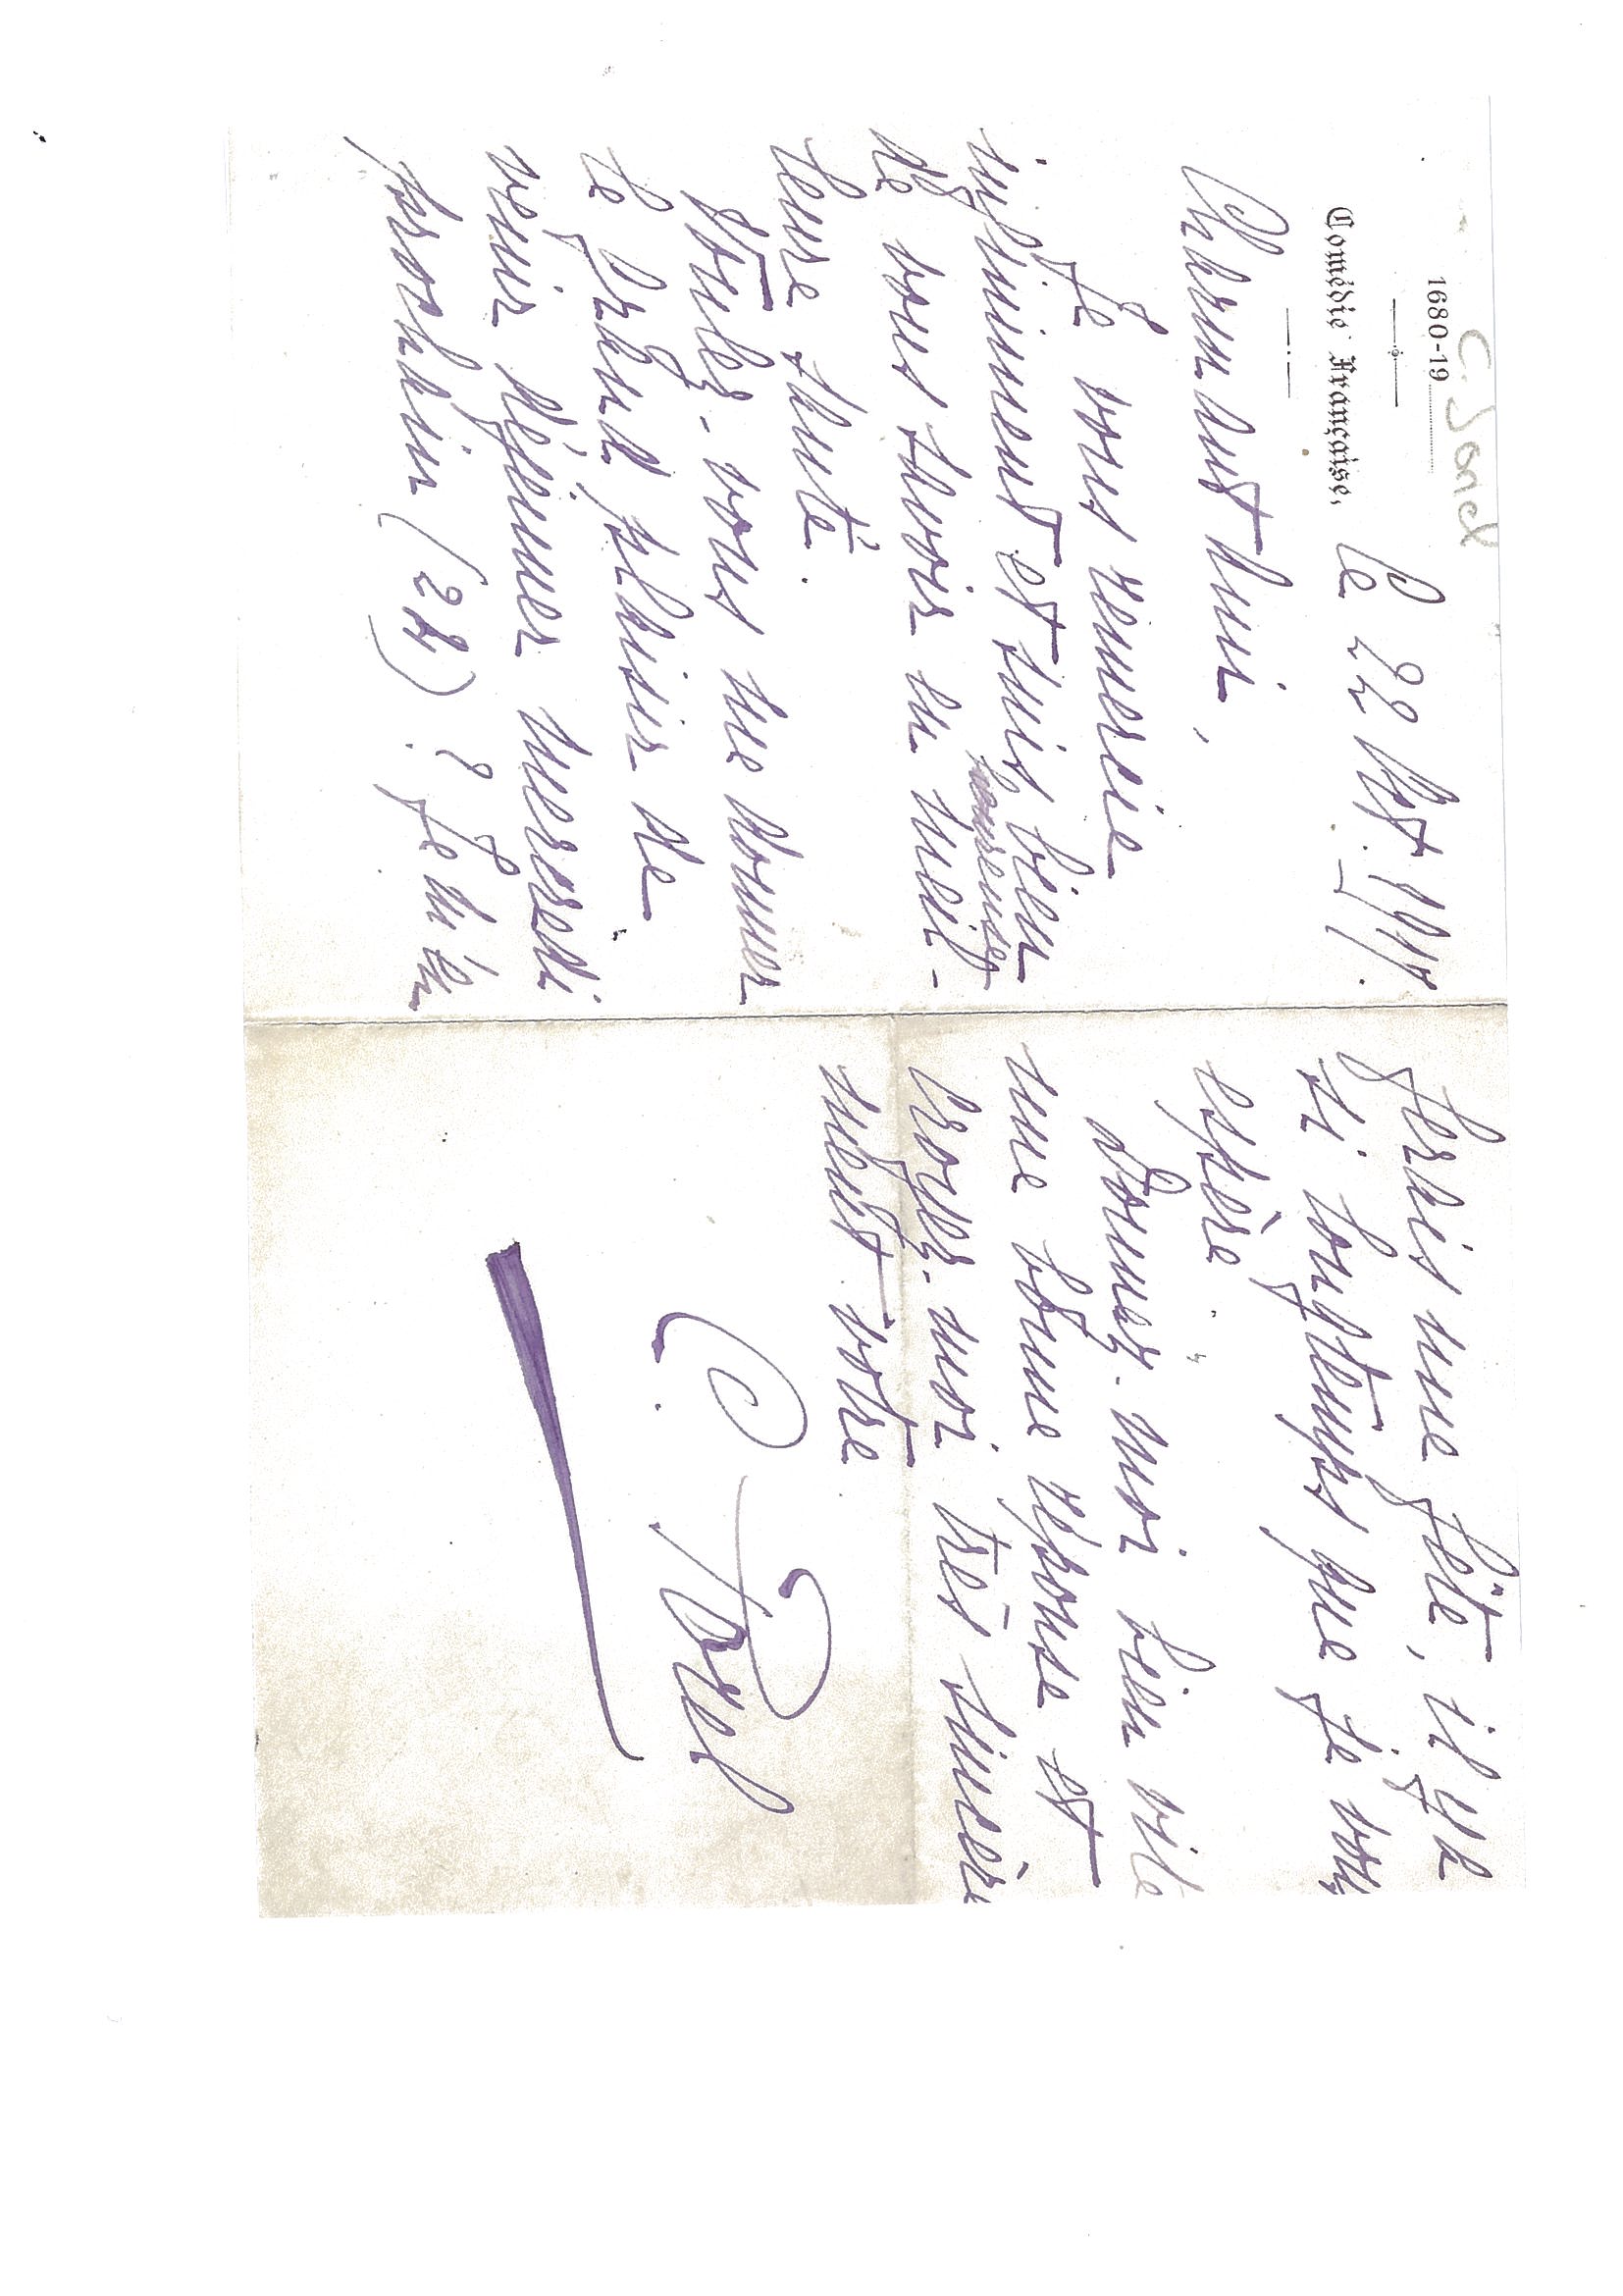 C. Sorel
1680-19
Comédie Française,
le 22 Oct. 1911.
Charmant Ami,
Je vous remercie
infiniment et suis bien
heureuse
de vous savoir en meil-
leure santé.
Voulez-vous me donner
le grand plaisir de
venir déjeuner mercredi
prochain (2h)? Je m'en
ferais une fête, il y a
si longtemps que je vous
espère
Donnez-moi bien vite
une bonne réponse et
croyez-moi très sincère
ment vôtre
C. Sorel